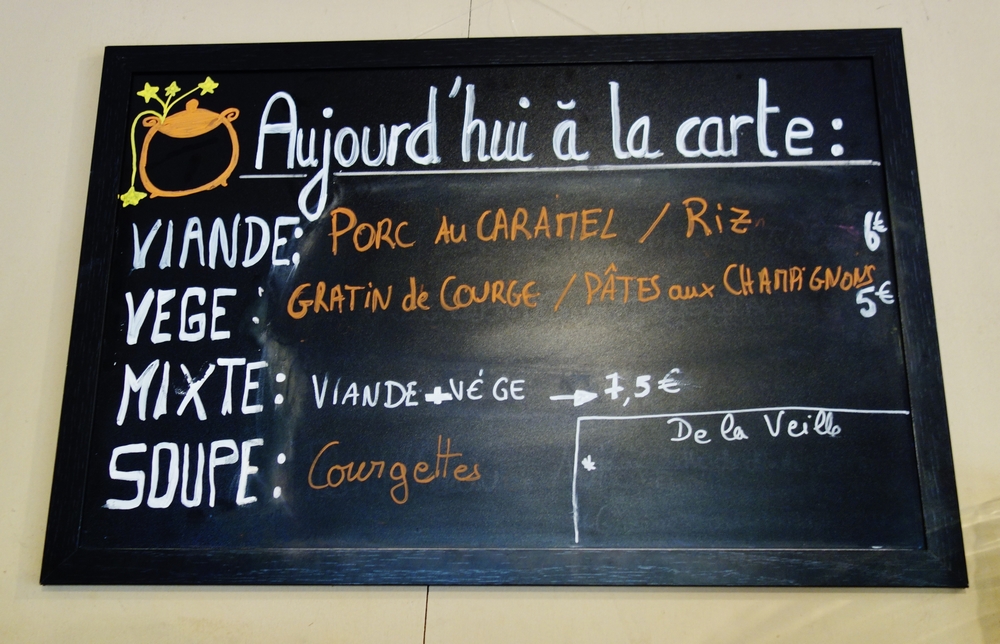 Aujourd'hui à la carte :
VIANDE: PORC AU CARAMEL / Riz 6€
VEGE : GRATIN de COURGE / PÂTES aux CHAMPIGNONS 5€
MIXTE: VIANDE+VÉGE → 7,5€
De la Veille
*
SOUPE: Courgettes